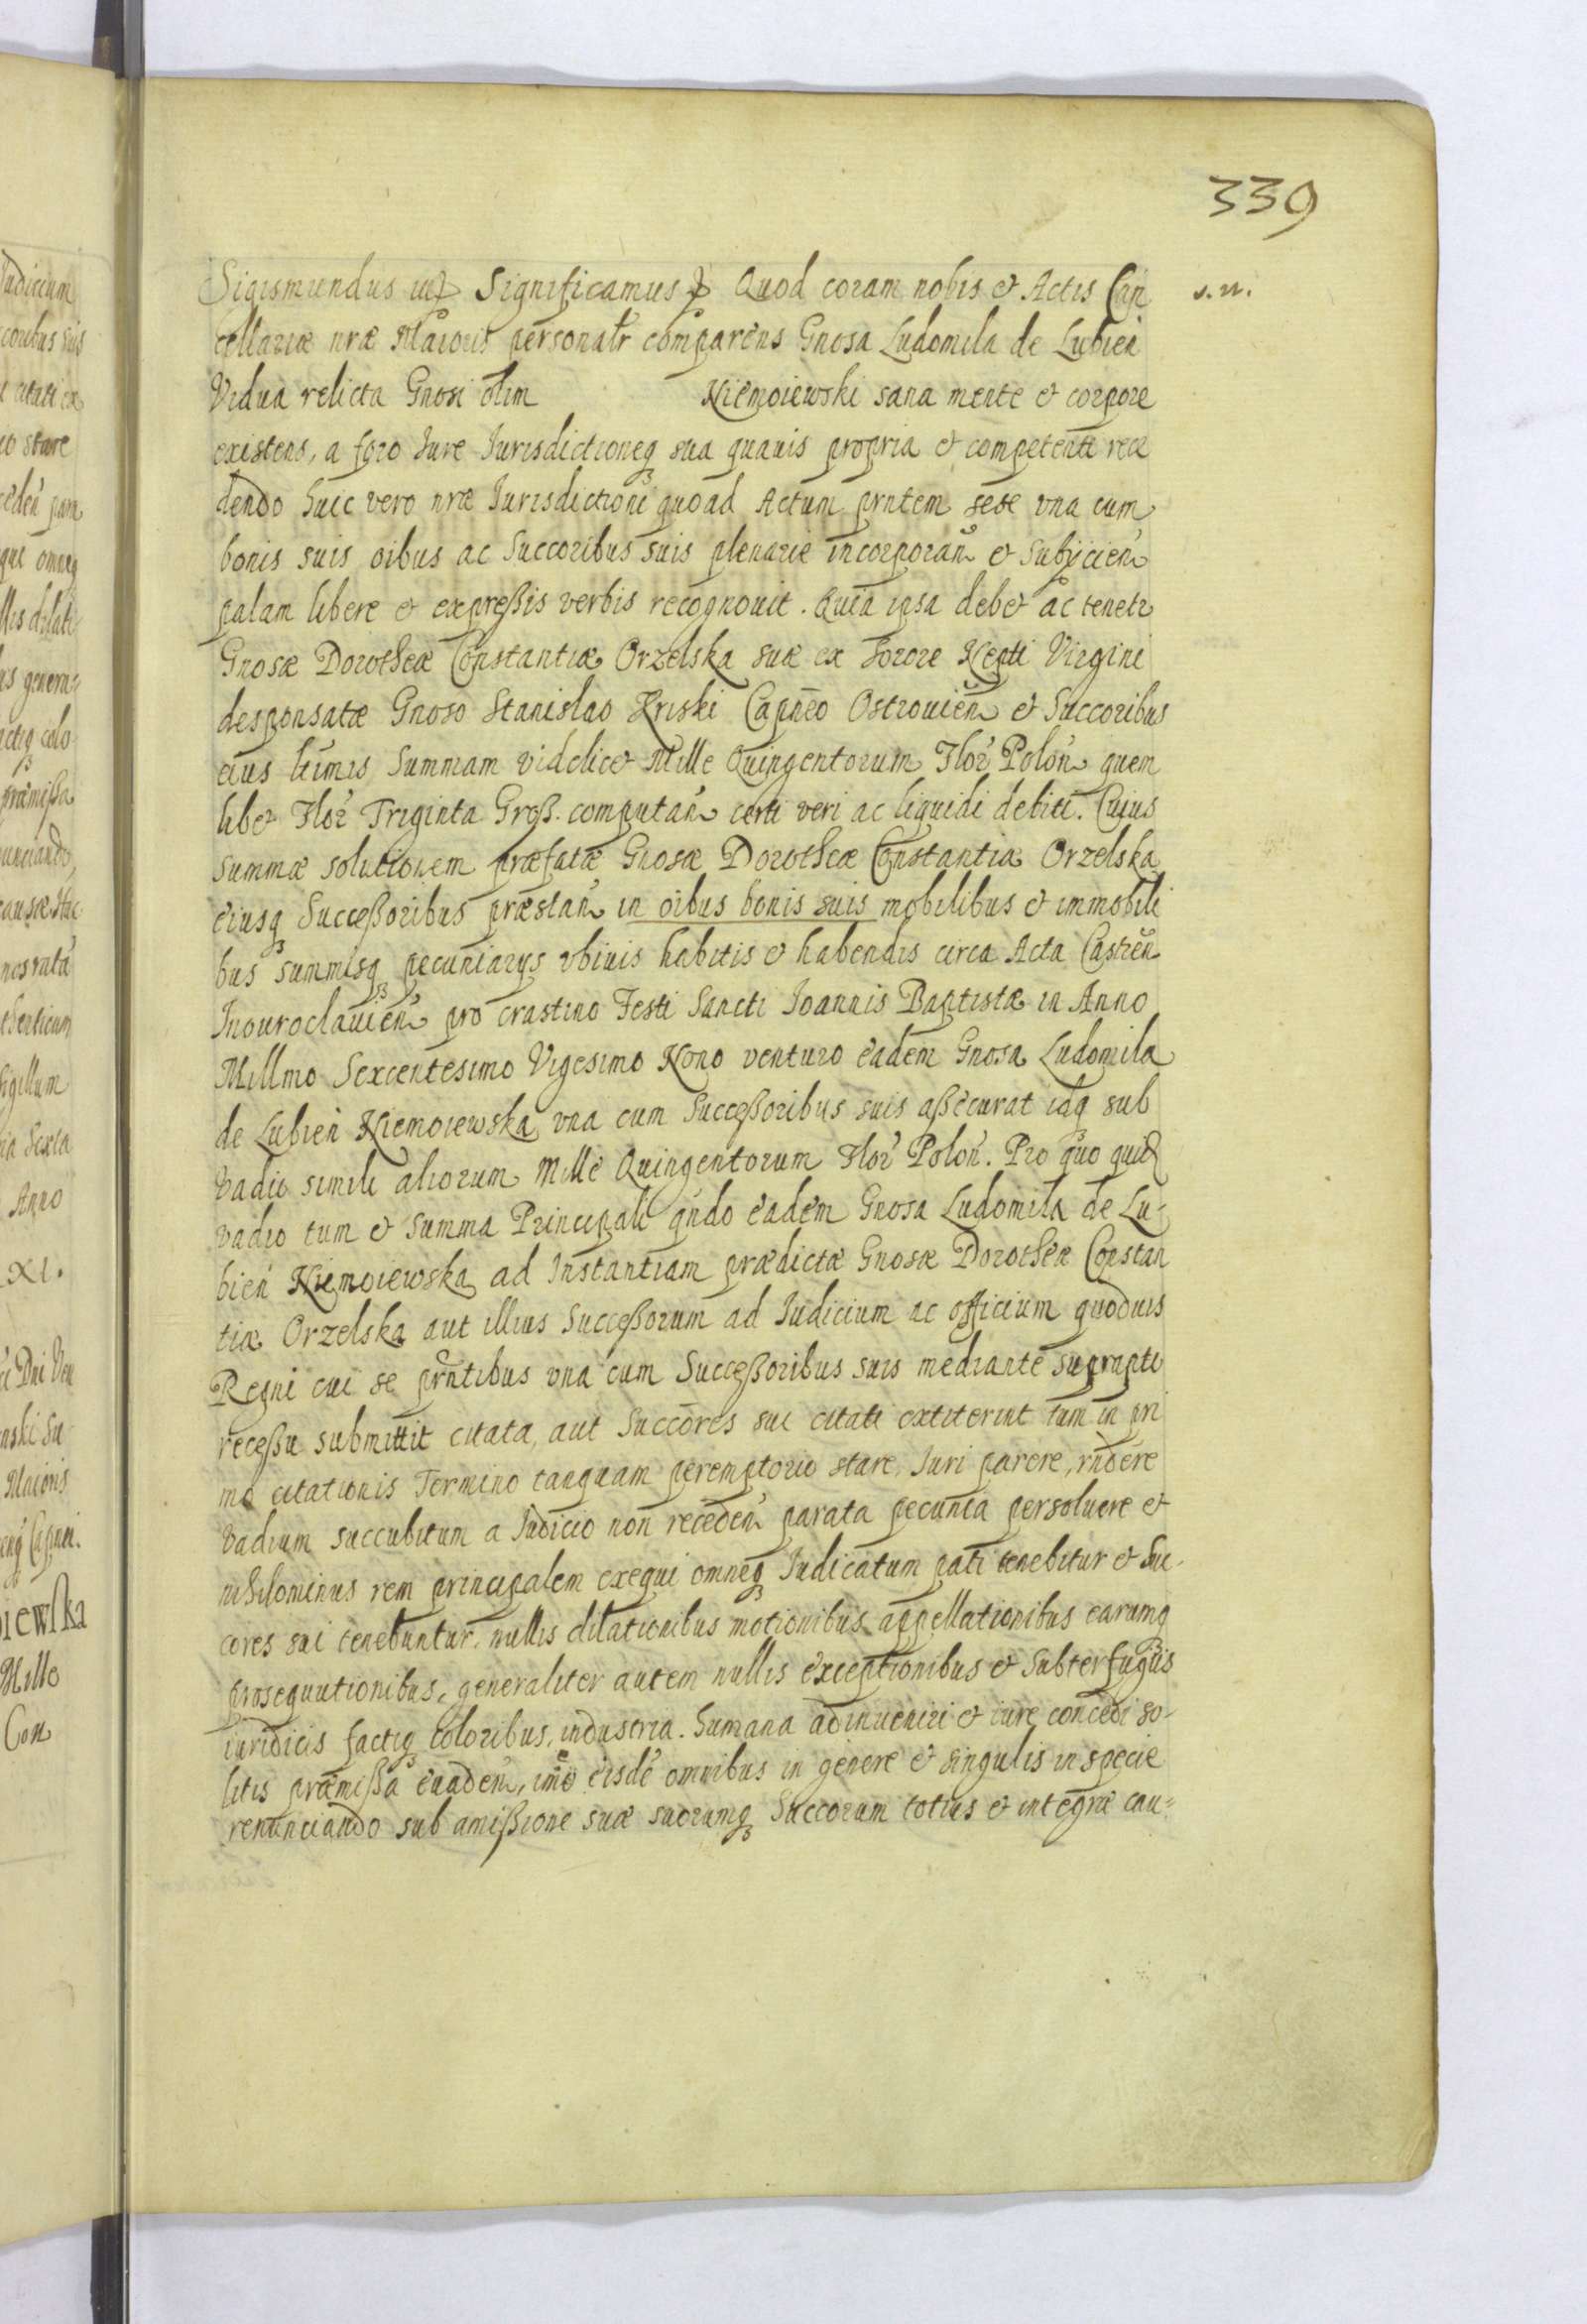 339
Sigismundus Significamus Quod coram nobis et Actis Can s. n.
cellariæ nræ Maioris personalr comparens Gnosa Ludomila de Lubien
Vidua relicta Gnosi olim Niemoiewski sana mente et corpore
existens, a foro Iure Iurisdictioneq3 sua quauis propria et competenti rece
dendo huic vero nræ Iurisdictioni quoad Actum prntem sese vna cum
bonis suis oibus ac Succoribus suis plenarie incorporan et Subijcien
palam libere et expreßis verbis recognouit. Quia ipsa debet ac tenetr
Gnosæ Dorotheæ Constantiæ Orzelska suæ ex Sorore Nepti Virgini
desponsatæ Gnoso Stanislao Kriski Capneo Ostrouien et Succoribus
eius ltimis Summam videlicet Mille Quingentorum Flor Polon quem
libet Flor Triginta Groß. computan certi veri ac liquidi debiti. Cuius
summæ solutionem præfatæ Gnosæ Dorotheæ Constantiæ Orzelska
eiusq3 Succeßoribus præstan in oibus bonis suis mobilibus et immobili
bus summisq3 pecuniarys vbiuis habitis et habendis circa Acta Castren
Inouroclauien pro crastino Festi Sancti Ioannis Baptistæ in Anno
Millmo Sexcentesimo Vigesimo Nono venturo eadem Gnosa Ludomila
de Lubien Niemoiewska vna cum Succeßoribus suis aßecurat idq3 sub
vadio simili aliorum Mille Quingentorum Flor Polon. Pro quo quid
vadio tum et Summa Principali qndo eadem Gnosa Ludomila de Lu-
bien Niemoiewska ad Instantiam prædictæ Gnosæ Dorotheæ Constan
tiæ Orzelska aut illius Succeßorum ad Iudicium ac officium quoduis
Regni cui se prntibus vna cum Succeßoribus suis mediante suprapti
receßu submittit citata, aut Succores sui citati extiterint tum in pri
mo citationis Termino tanquam peremptorio stare, Iuri parere, rndere
vadium succubitum a Iudicio non receden parata pecunia persoluere et
nihilominus rem principalem exequi omneq3 Iudicatum pati tenebitur et Suc-
cores sui tenebuntur, nullis dilationibus motionibus appellationibus earumq3
prosequutionibus, generaliter autem nullis exceptionibus et Subterfugiis
iuridicis factiq3 coloribus, industria humana adinueniri et iure concedi so-
litis præmißa euaden, imo eisde omnibus in genere et singulis in specie
renunciando sub amißione suæ suorumq3 Succorum totius et integræ cau-